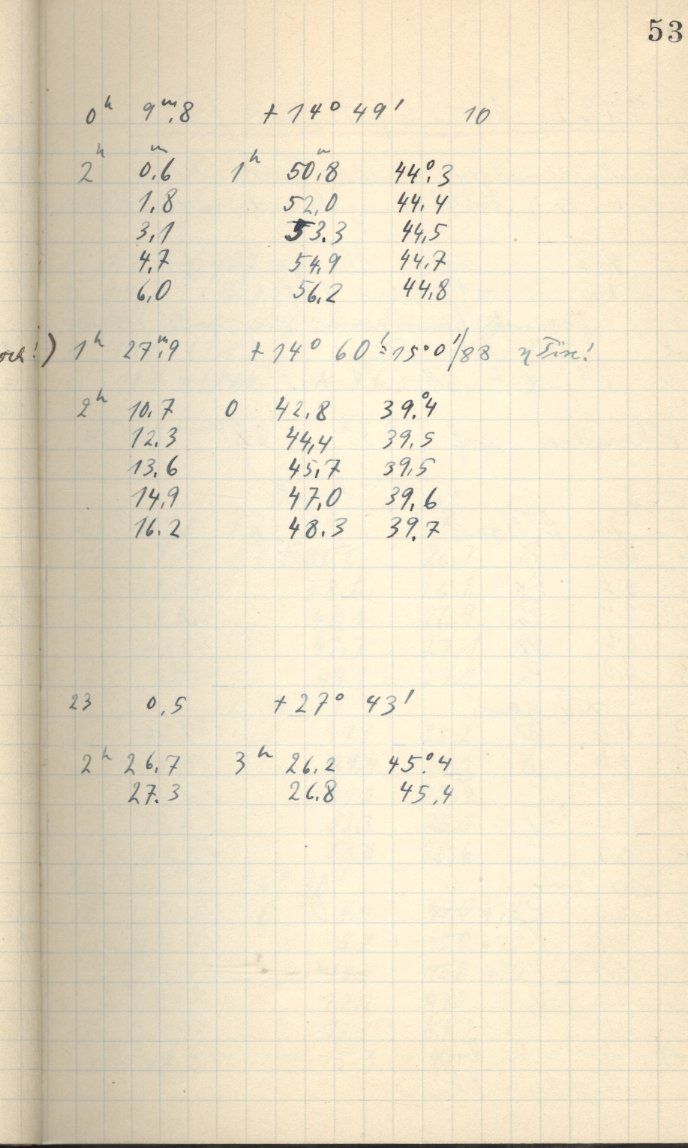 53
0ʰ 9ᵐ,8 + 14° 49′ 10
2ʰ 0ᵐ,6 1ʰ 50ᵐ,8 44°,3
1,8 52,0 44,4
3,1 53.3 44,5
4,7 54,9 44,7
6,0 56,2 44,8
!) 1ʰ 27ᵐ,9 + 14° 60′ = 15° 0′/88 η !
2ʰ 10.7 0 42,8 39°,4
12,3 44,4 39,5
13,6 45,7 39,5
14,9 47,0 39,6
16.2 48.3 39,7
23 0,5 + 27° 43′
2ʰ 26,7 3ʰ 26,2 45°,4
27.3 26,8 45,4